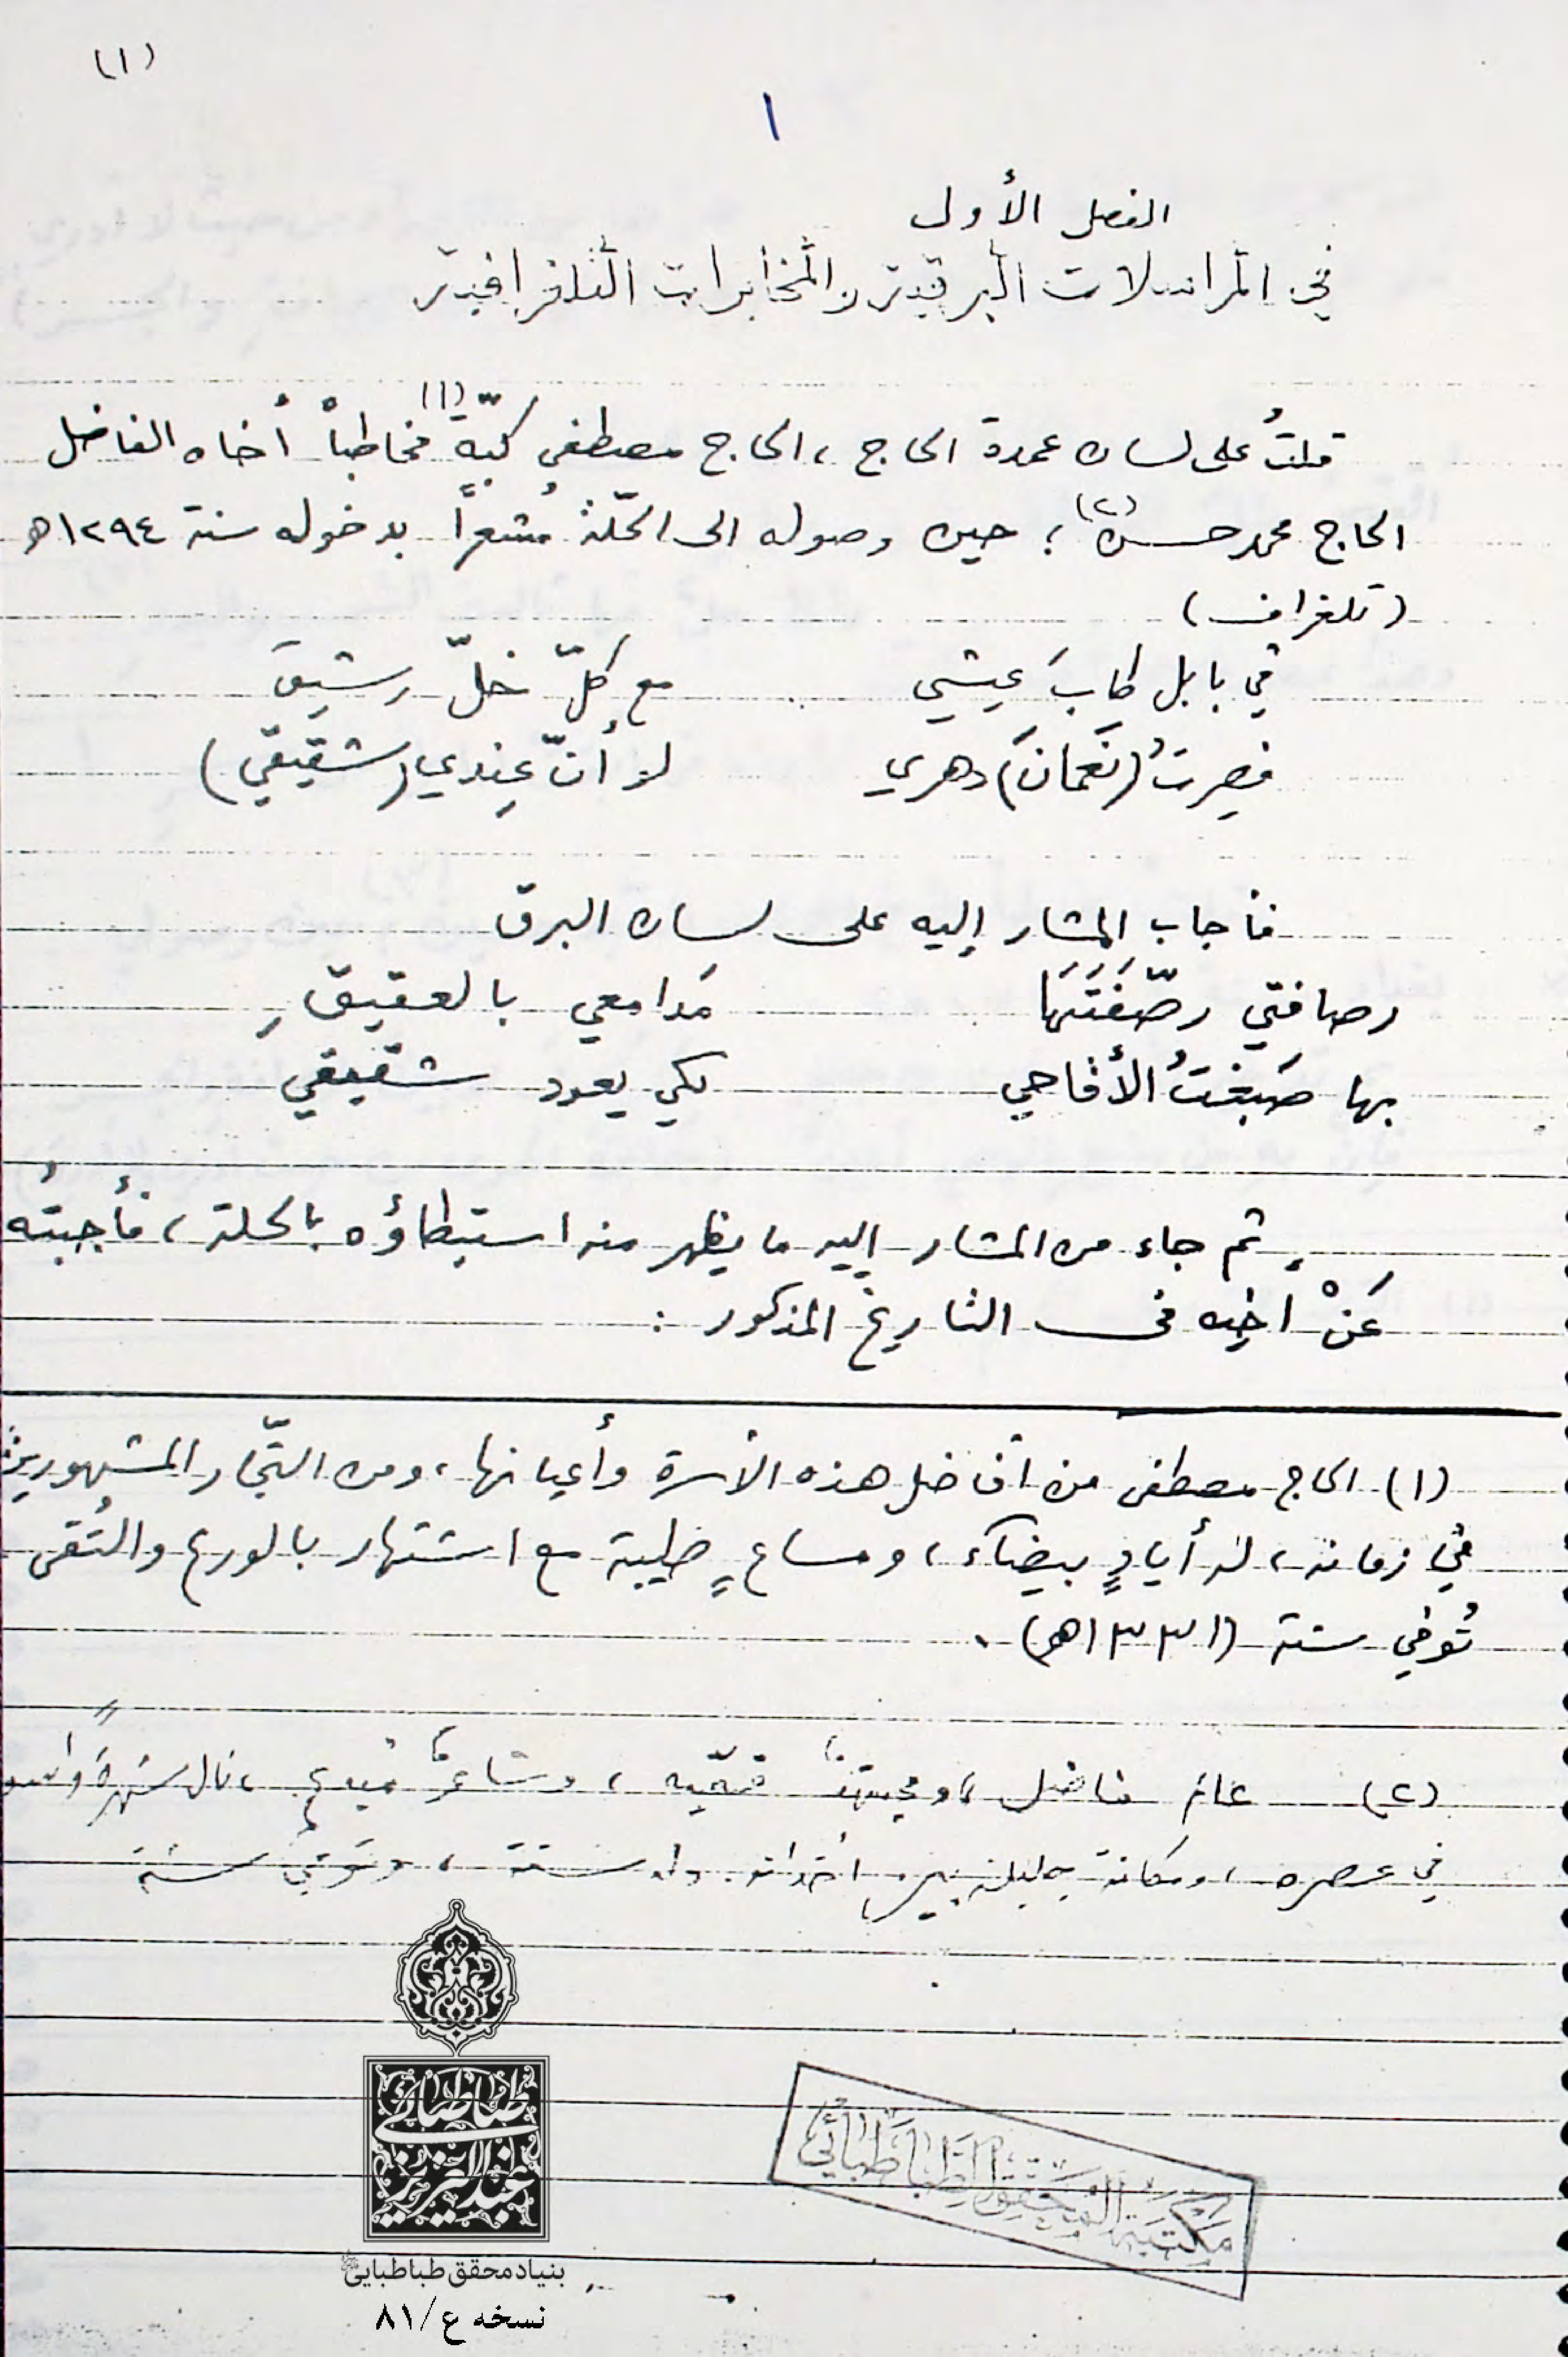 (١)
١
الفصل الأول
في المراسلات البرقية والمخابرات التلغرافية
قلتُ على لسان عمدة الحاج ، الحاج مصطفى كبّة (١) مخاطباً أخاه الفاضل
الحاج محمد حسن (٢) ؛ حين وصوله الى الحلّة مُشعراً بدخوله سنة ١٢٩٤ه
(تلغراف)
في بابل طابَ عيشي مع كلّ خلّ رشيق
فصِرتُ (نعمانَ) دهري لو أنّ عِندي (شقيقي)
فأجاب المشار إليه على لسان البرق
رصافتي رصّفَتَها مَدامعي بالعقيقِ
بها صَبغتُ الأقاحي لكي يعود شقيقي
ثم جاء من المشار إليه ما يظهر منه استبطاؤه بالحلة ، فأجبتُه
عَنْ أخيه في التاريخ المذكور :
(١) الحاج مصطفى من أفاضل هذه الأسرة وأعيانها ، ومن التّجار المشهورين
في زمانه ، له أيادٍ بيضاء ، ومساعٍ طيبة مع اشتهار بالورع والتُقى
تُوفي سنة (١٣٣١هـ) .
(٢) عالم فاضل ، ومجتهد فقيه ، وشاعر مبدع ، نال شهرةً
في عصره ، ومكانة جليلة بين أخوانه ولد سنة ، وتوفي سنة
طباطبائی
عبدالعزیز
بنیاد محقق طباطبایی
نسخه ع/٨١
مكتبة المحقق الطباطبائي